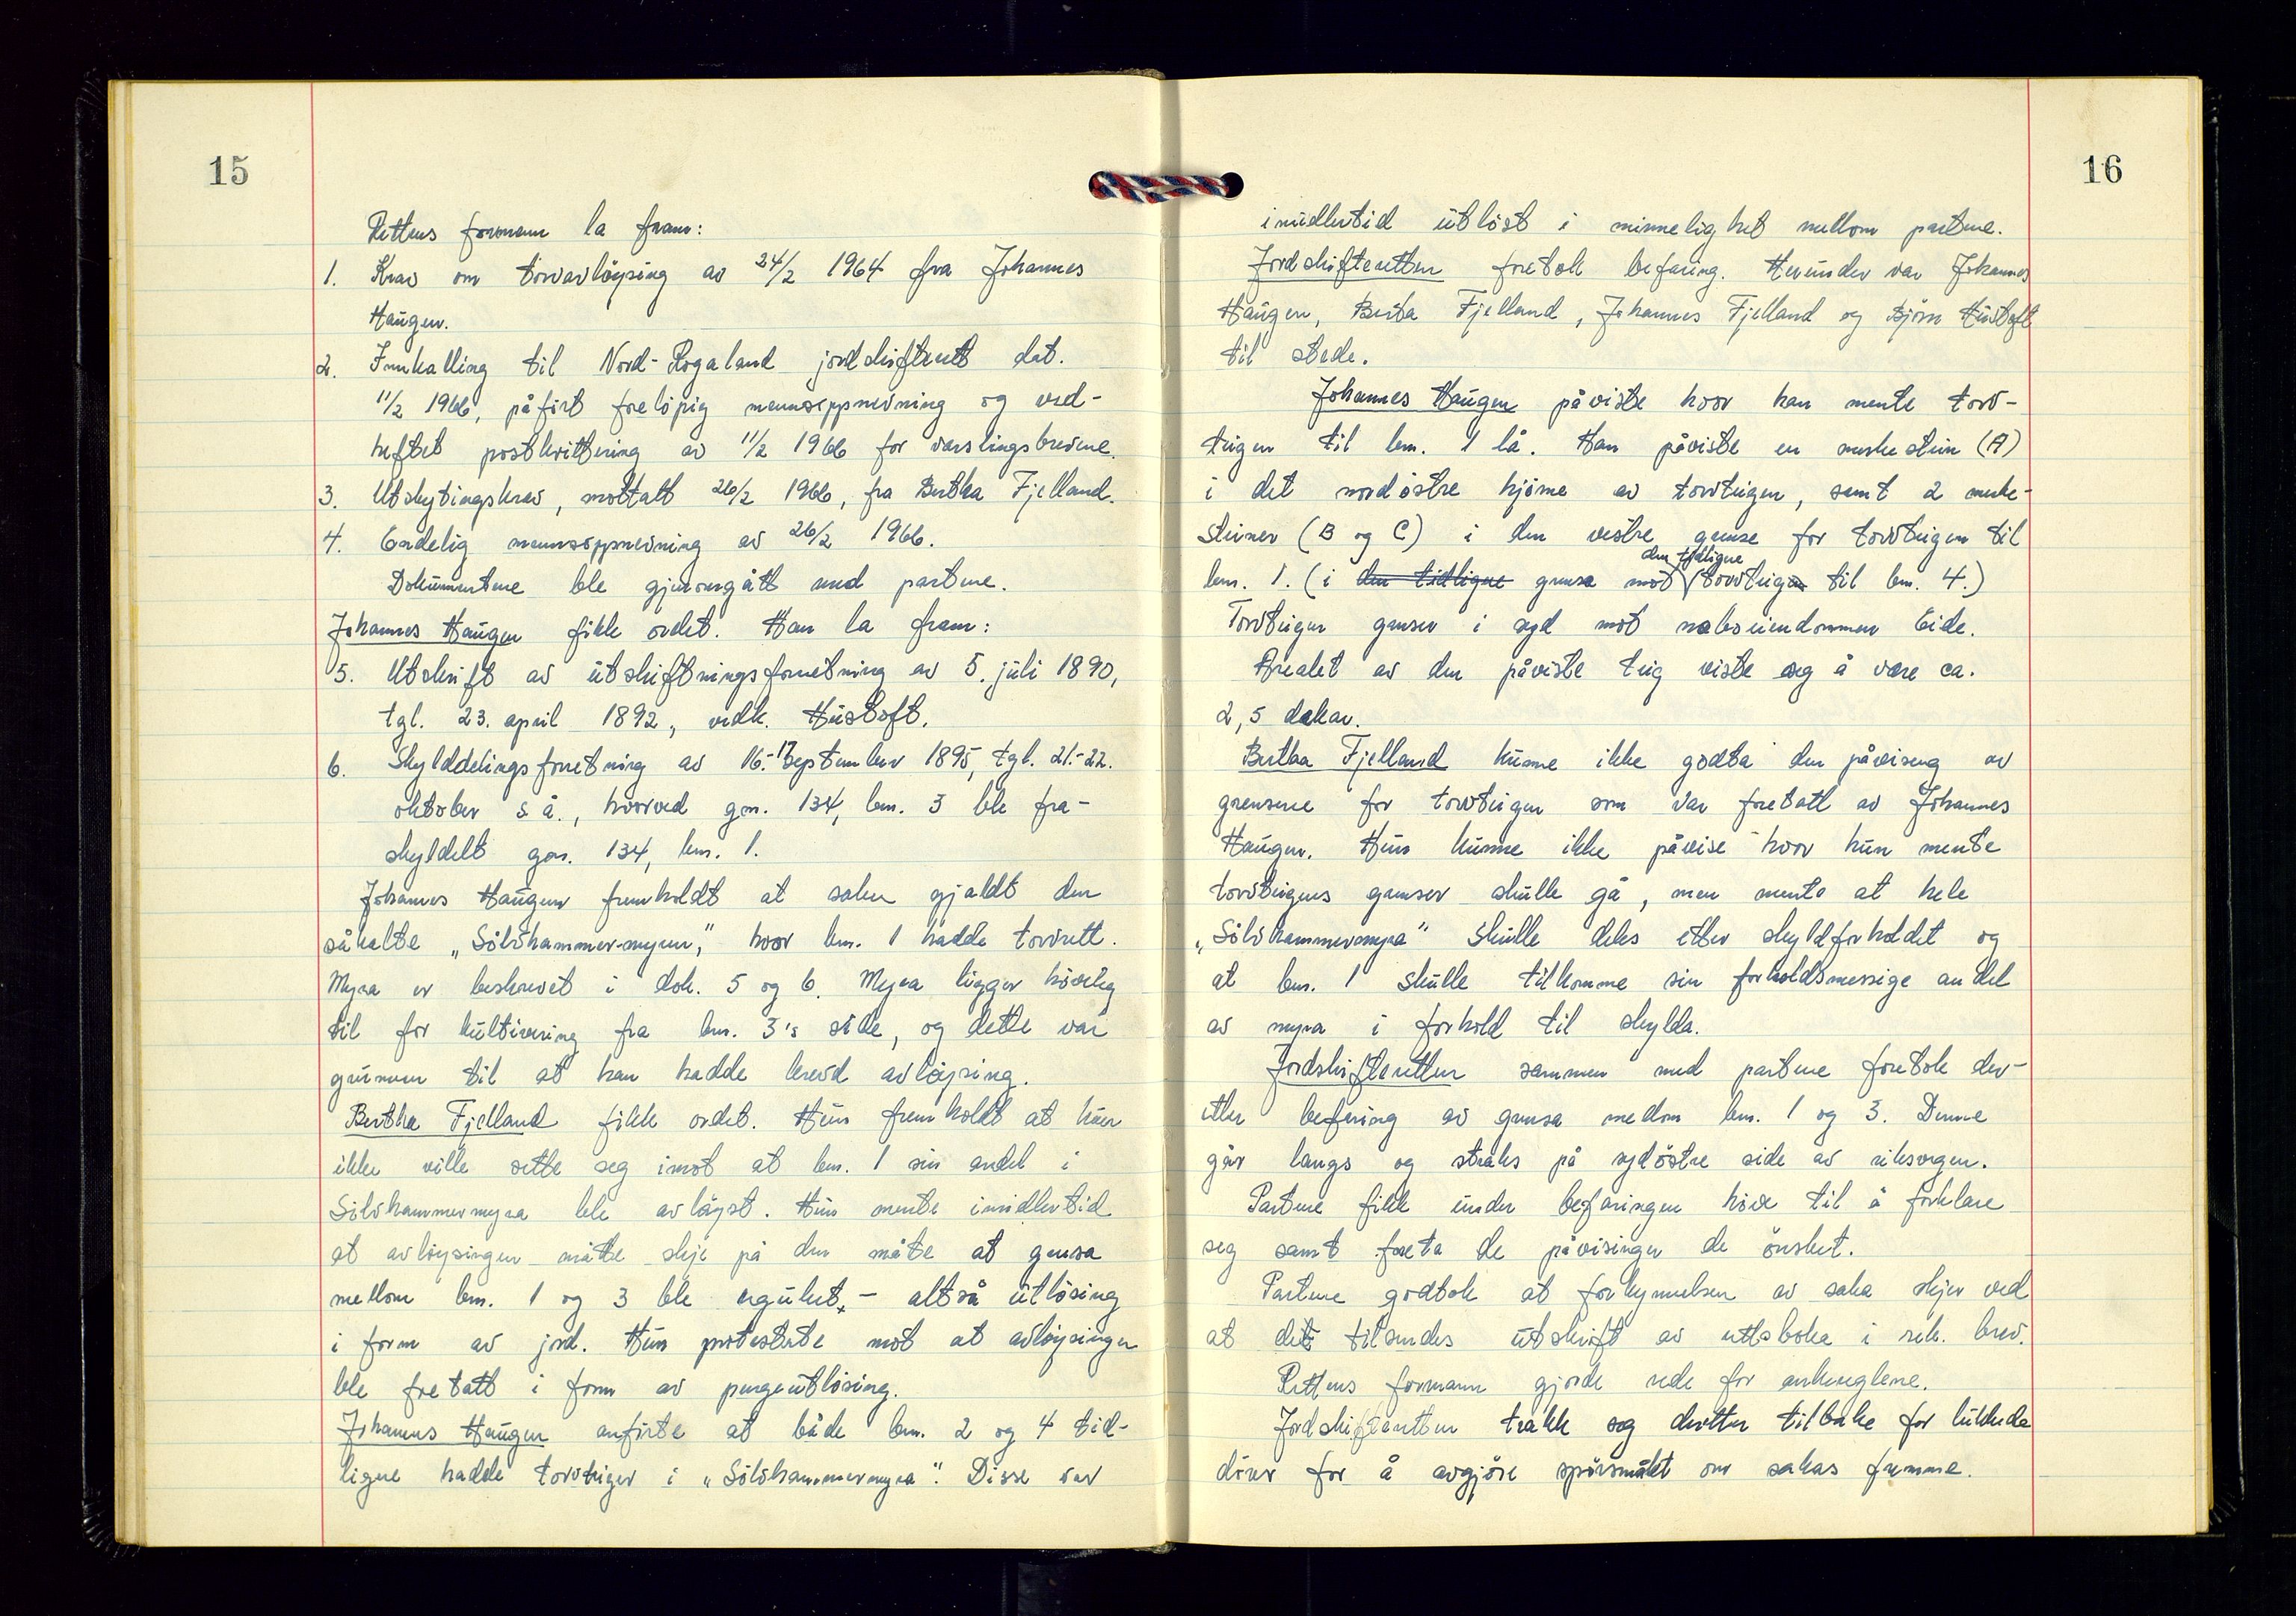 15
Rettens formann la fram:
1. Krav om torvavløysing av 24/2 1964 fra Johannes
Haugen.
2. Innkalling til Nord-Rogaland jordskifterett dat.
11/2 1966, påført foreløpig mennsoppnevning og ved-
heftet postkvittering av 11/2 1966 for varslingsbrevene.
3. Utskytingskrav, mottatt 26/2 1966, fra Bertha Fjelland.
4. Endelig mennsoppnevning av 26/2 1966.
Dokumentene ble gjennomgått med partene.
Johannes Haugen fikk ordet. Han la fram:
5. Utskrift av utskiftningsforretning av 5. juli 1890,
tgl. 23. april 1892, vedk. Hustoft.
6. Skylddelingsforretning av 16.-17 september 1895, tgl. 21.-22.
oktober s.å., hvorved gnr. 134, bnr. 3 ble fra-
skyldelt gnr. 134, bnr. 1.
Johannes Haugen fremholdt at saken gjaldt den
såkalte „Sölvhammer-myren,“ hvor bnr. 1 hadde torvrett.
Myra er beskrevet i dok. 5 og 6. Myra ligger høvelig
til for kultivering fra bnr. 3's side, og dette var
grunnen til at han hadde krevd avløysing.
Bertha Fjelland fikk ordet. Hun fremholdt at hun
ikke ville sette seg imot at bnr. 1 sin andel i
Sölvhammermyra ble avløyst. Hun mente imidlertid
at avløysingen måtte skje på den måte at grensa
mellom bnr. 1 og 3 ble regulert, – altså utløsing
i form av jord. Hun protesterte mot at avløysingen
ble foretatt i form av pengeutløsing.
Johannes Haugen anførte at både bnr. 2 og 4 tid-
ligere hadde torvteiger i „Sölvhammermyra“. Disse var
16
imidlertid utløst i minnelighet mellom partene.
Jordskifteretten foretok befaring. Herunder var Johannes
Haugen, Berta Fjelland, Johannes Fjelland og Bjørn Hustoft
til stede.
Johannes Haugen påviste hvor han mente torv-
teigen til bnr. 1 lå. Han påviste en merkestein (A)
i det nordøstre hjørne av torvteigen, samt 2 merke-
steiner (B og C) i den vestre grense for torvteigen til
den tidligere
bnr. 1. (i den tidligere grensa mot torvteigen til bnr. 4.)
Torvteigen grenser i syd mot naboeiendommen Eide.
Arealet av den påviste teig viste seg å være ca.
2,5 dekar.
Bertha Fjelland kunne ikke godta den påvising av
grensene for torvteigen som var foretatt av Johannes
Haugen. Hun kunne ikke påvise hvor hun mente
torvteigens grenser skulle gå, men mente at hele
„Sölvhammermyra“ skulle deles etter skyldforholdet og
at bnr. 1 skulle tilkomme sin forholdsmessige andel
av myra i forhold til skylda.
Jordskifteretten sammen med partene foretok der-
etter befaring av grensa mellom bnr. 1 og 3. Denne
går langs og straks på sydøstre side av riksvegen.
Partene fikk under befaringen høve til å forklare
seg samt foreta de påvisinger de ønsket.
Partene godtok at forkynnelsen av saka skjer ved
at det tilsendes utskrift av rettsboka i rek. brev.
Rettens formann gjorde rede for ankereglene.
Jordskifteretten trakk seg deretter tilbake for lukkede
dører for å avgjøre spørsmålet om sakas fremme.